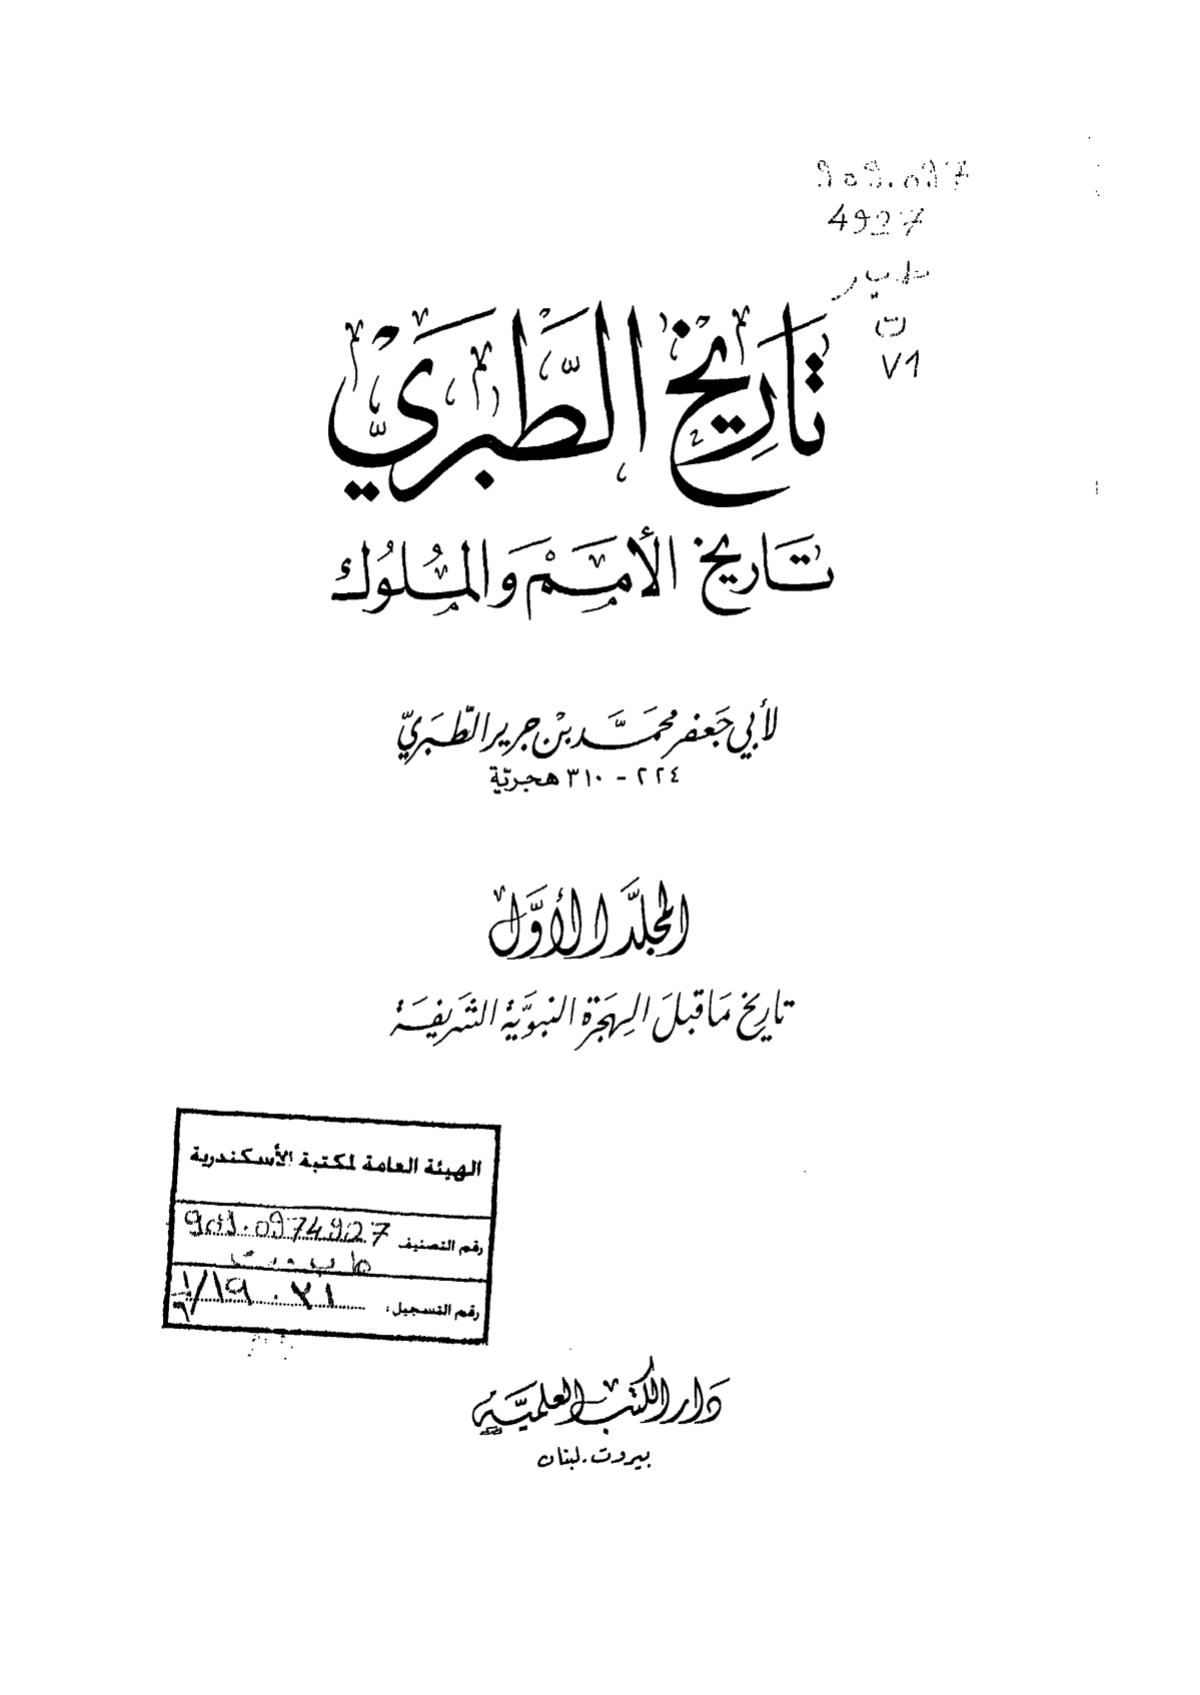 909.097
4927
طبر
ت
V1
تَارِيخ الطَّبَرِيّ
تاريخ الأمَم وَالمُلُوك
لأبي جَعفر محمَّد بْن جرير الطّبَريّ
٢٢٤ - ٣١٠ هجريّة
المجلّد الأوّل
تاريخ مَا قبلَ الهِجرَة النبَويَّة الشَريفَة
الهيئة العامة لمكتبة الأسكندرية
رقم التصنيف 909.0974927
رقم التسجيل:
دَار الكتب العلميَّة
بيروت. لبنان